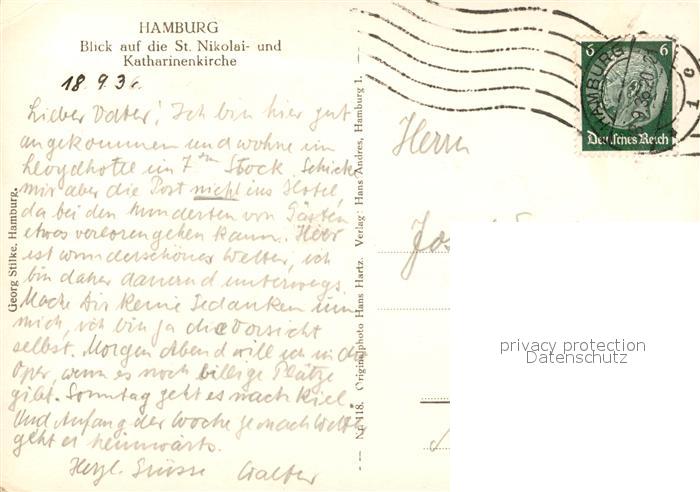 HAMBURG
Blick auf die St. Nikolai- und
Katharinenkirche
18.9.36.
Lieber Vater! Ich bin hier gut
angekommen und wohne im
Lloydhotel im 7ten Stock. Schick
mir aber die Post nicht ins Hotel,
da bei den Hunderten von Gästen
etwas verlorengehen kann. Hier
ist wunderschönes Wetter, ich
bin daher dauernd unterwegs.
Mache Dir keine Gedanken um
mich, ich bin ja die Vorsicht
selbst. Morgen Abend will ich in die
Oper, wenn es noch billige Plätze
gibt. Sonntag geht es nach Kiel.
Und Anfang der Woche je nach Wetter
geht es heimwärts.
Herzl. Grüsse Walter
Georg Stilke, Hamburg.
Nr. 118. Originalphoto Hans Hartz. Verlag: Hans Andres, Hamburg 1.
Herrn
6 6
Deutsches Reich
HAMBURG
privacy protection
Datenschutz